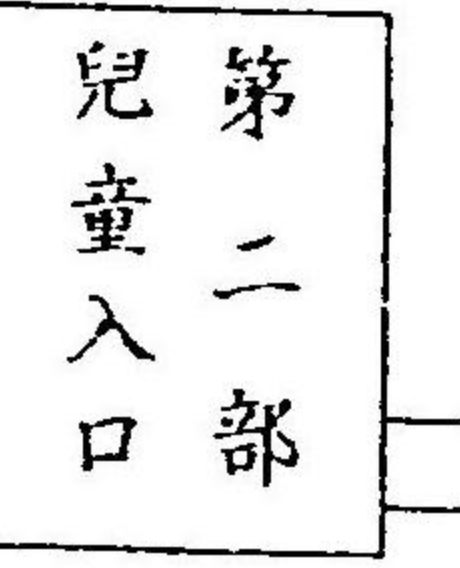 第二部
兒童入口